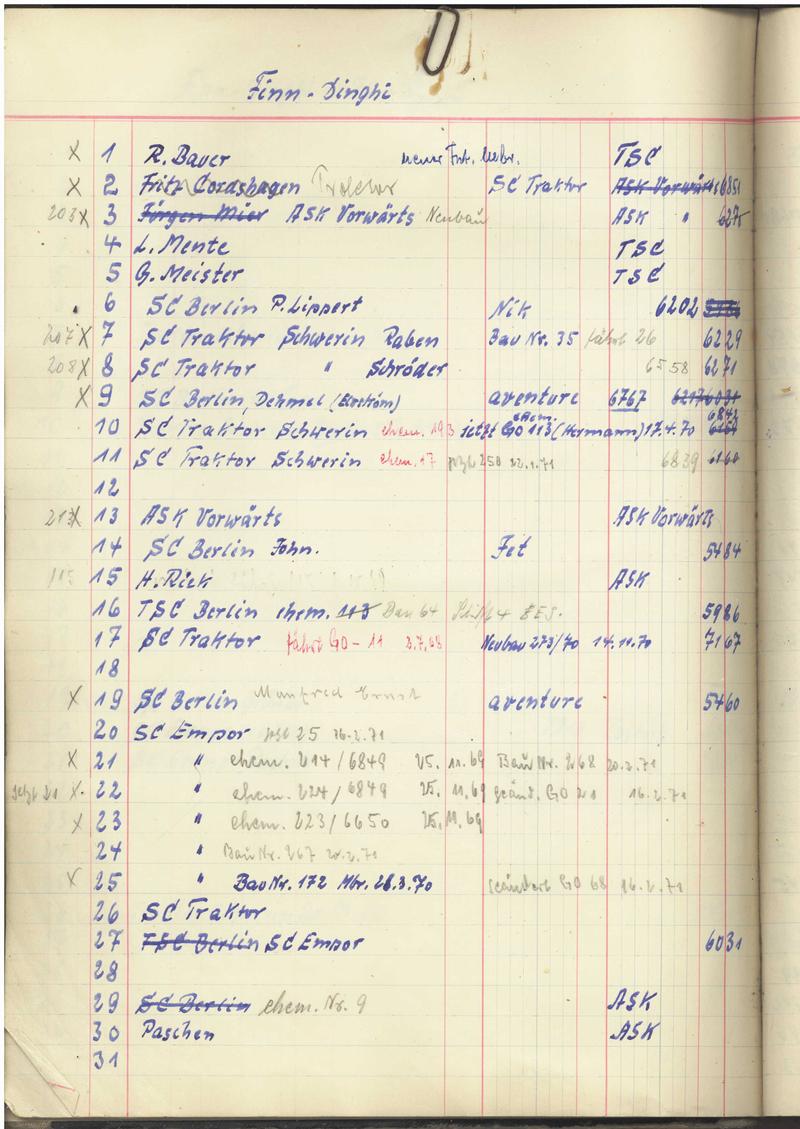 Finn - Dinghi
X 1 R. Bauer TSC
X 2 Fritz Cordshagen SC Traktor ASK Vorwärts 6851
203 X 3 Jürgen Mier ASK Vorwärts Neubau ASK " 6275
4 L. Mente TSC
5 G. Meister TSC
6 SC Berlin P. Lippert Nik 6202
207 X 7 SC Traktor Schwerin Raben Bau Nr. 35 fährt 26 6229
208 X 8 SC Traktor " Schröder 6558 6271
X 9 SC Berlin, Dehmel aventure 6767 6217 6031
10 SC Traktor Schwerin ehem. 193 jetzt ehem. GO 113 (Hermann) 17.4.70 6842
11 SC Traktor Schwerin ehem. 17 jetzt 250 22.1.71 6839 6160
12
213 X 13 ASK Vorwärts ASK Vorwärts
14 SC Berlin John. Fet 5484
115 15 H. Rick ASK
16 TSC Berlin ehem. 113 5986
17 SC Traktor fährt GO - 11 3.7.68 Neubau 273/70 14.11.70 7167
18
X 19 SC Berlin Manfred Ernst aventure 5460
20 SC Empor jetzt 25 16.2.71
X 21 " ehem. 214/6849 25.11.69 Bau Nr. 268 20.2.71
jetzt 21 X 22 " ehem. 224/6849 25.11.69 geänd. GO 21 16.2.71
X 23 " ehem. 223/6650 25.11.69
24 " Bau Nr. 267 20.2.71
X 25 " Bau Nr. 172 Mbr. 28.3.70 geändert GO 68 16.2.71
26 SC Traktor
27 TSC Berlin SC Empor 6031
28
29 SC Berlin ehem. Nr. 9 ASK
30 Paschen ASK
31